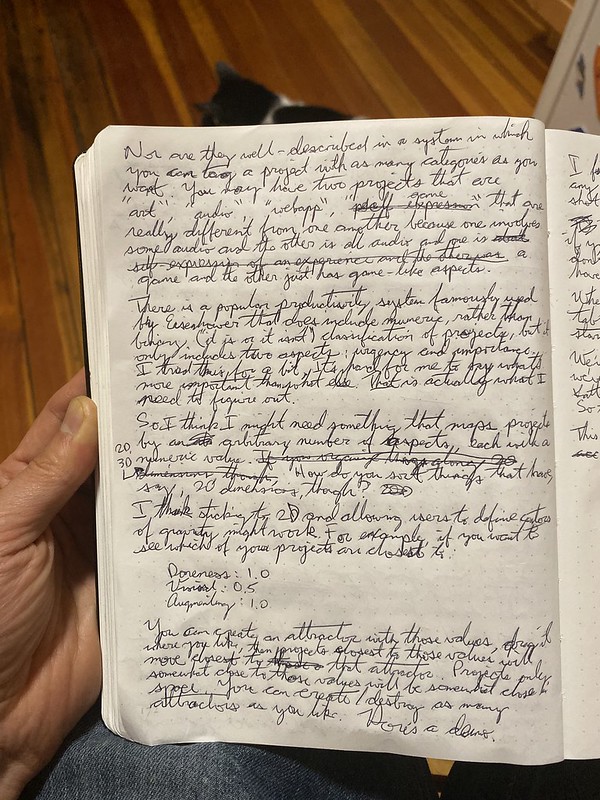 Nor are they well-described in a system in which
you can tag a project with as many categories as you
want. You may have two projects that are
game
"art", "audio", "webapp", " " that are
really different from one another because one involves
some audio and the other is all audio and one is
self-expression of an experience and the other was a
game and the other just has game-like aspects.
There is a popular productivity system famously used
by Eisenhower that does include numeric, rather than
binary, ("it is or it isn't") classification of projects, but it
only includes two aspects: urgency and importance.
I tried this for a bit. It's hard for me to say what's
more important than what else. That is actually what I
need to figure out.
So I think I might need something that maps projects
by an arbitrary number of aspects, each with a
2D,
3D
numeric value. If you
dimensions though. How do you sort things that have,
say, 20 dimensions, though?
I think sticking to 2D and allowing users to define centers
of gravity might work. For example, if you want to
see which of your projects are closest to:
Doneness: 1.0
Visual: 0.5
Augmenting: 1.0
You can create an attractor with those values, drag it
where you like, then projects closest to those values will
move closest to that attractor. Projects only
somewhat close to those values will be somewhat close in
space. You can create/destroy as many
attractors as you like. Here's a demo.
I
any
shot
if y
don't
have
Whe
tab
star
We'
we
So
This